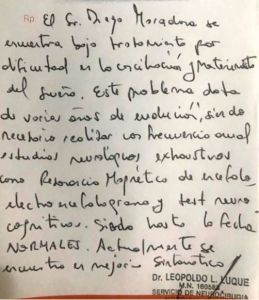 Rp. El Sr. Diego Maradona se
encuentra bajo tratamiento por
dificultad en la conciliación y mantenimiento
del sueño. Este problema data
de varios años de evolución, siendo
necesario realizar con frecuencia anual
estudios neurológicos exhaustivos
como Resonancia Magnética de encéfalo,
electroencefalograma y test neuro
cognitivos. Siendo hasta la fecha
NORMALES. Actualmente se
encuentra en mejoría sintomática
Dr. LEOPOLDO L. LUQUE
M.N.
SERVICIO DE NEUROCIRUGIA